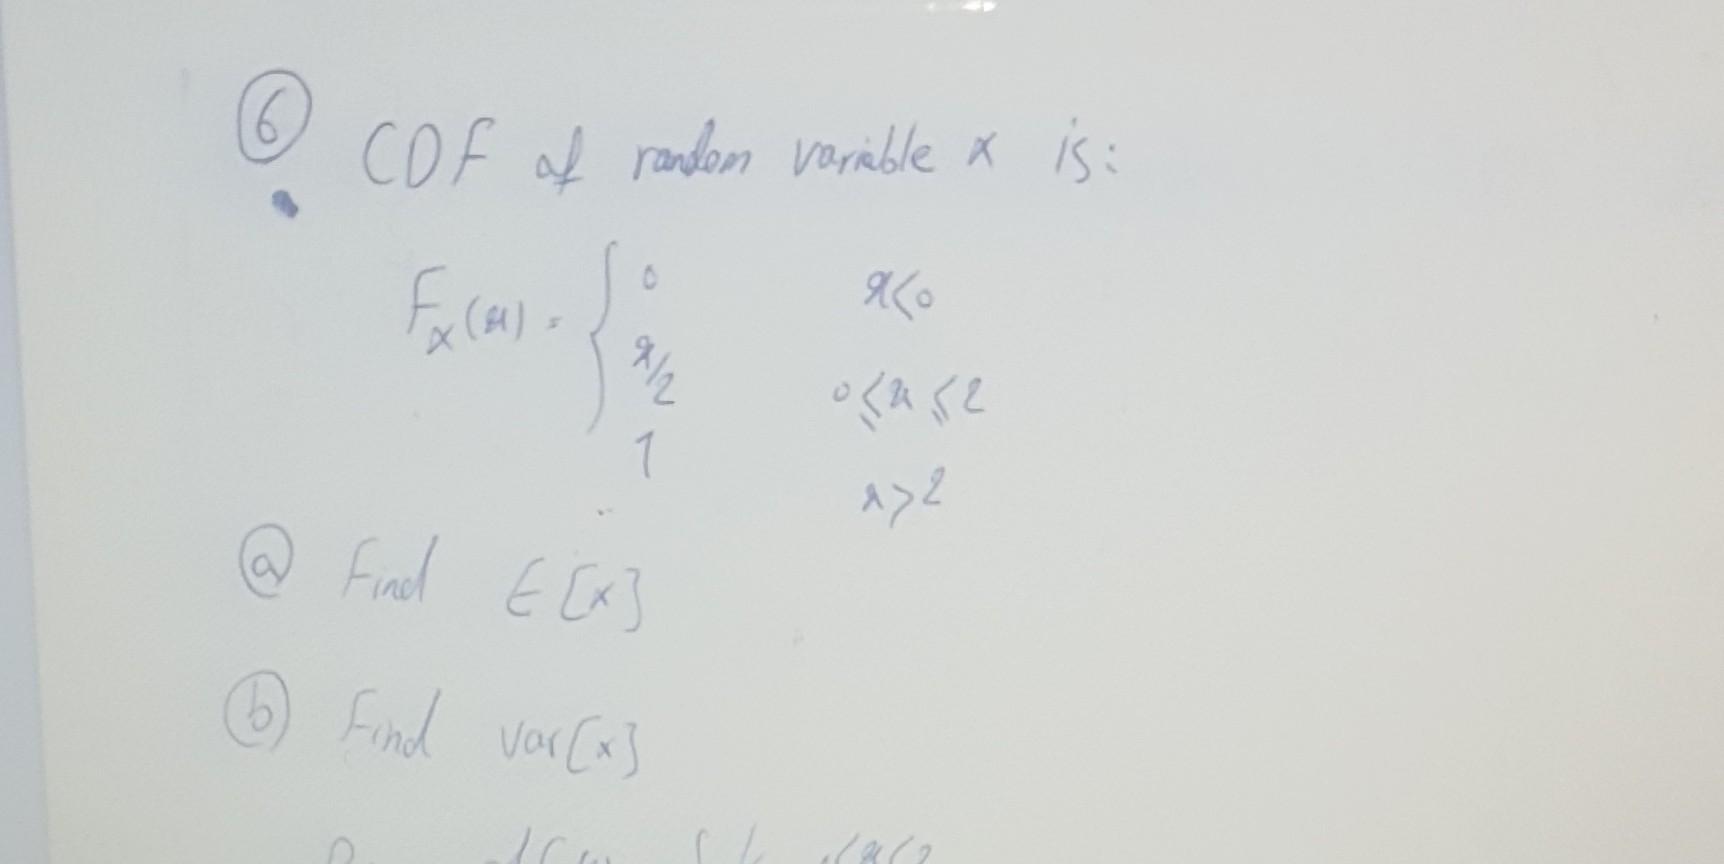 6 CDF of random variable x is:
Fx(x) = { 0 x<0
x/2 0≤x≤2
1 x>2
a Find E[x]
b Find var[x]